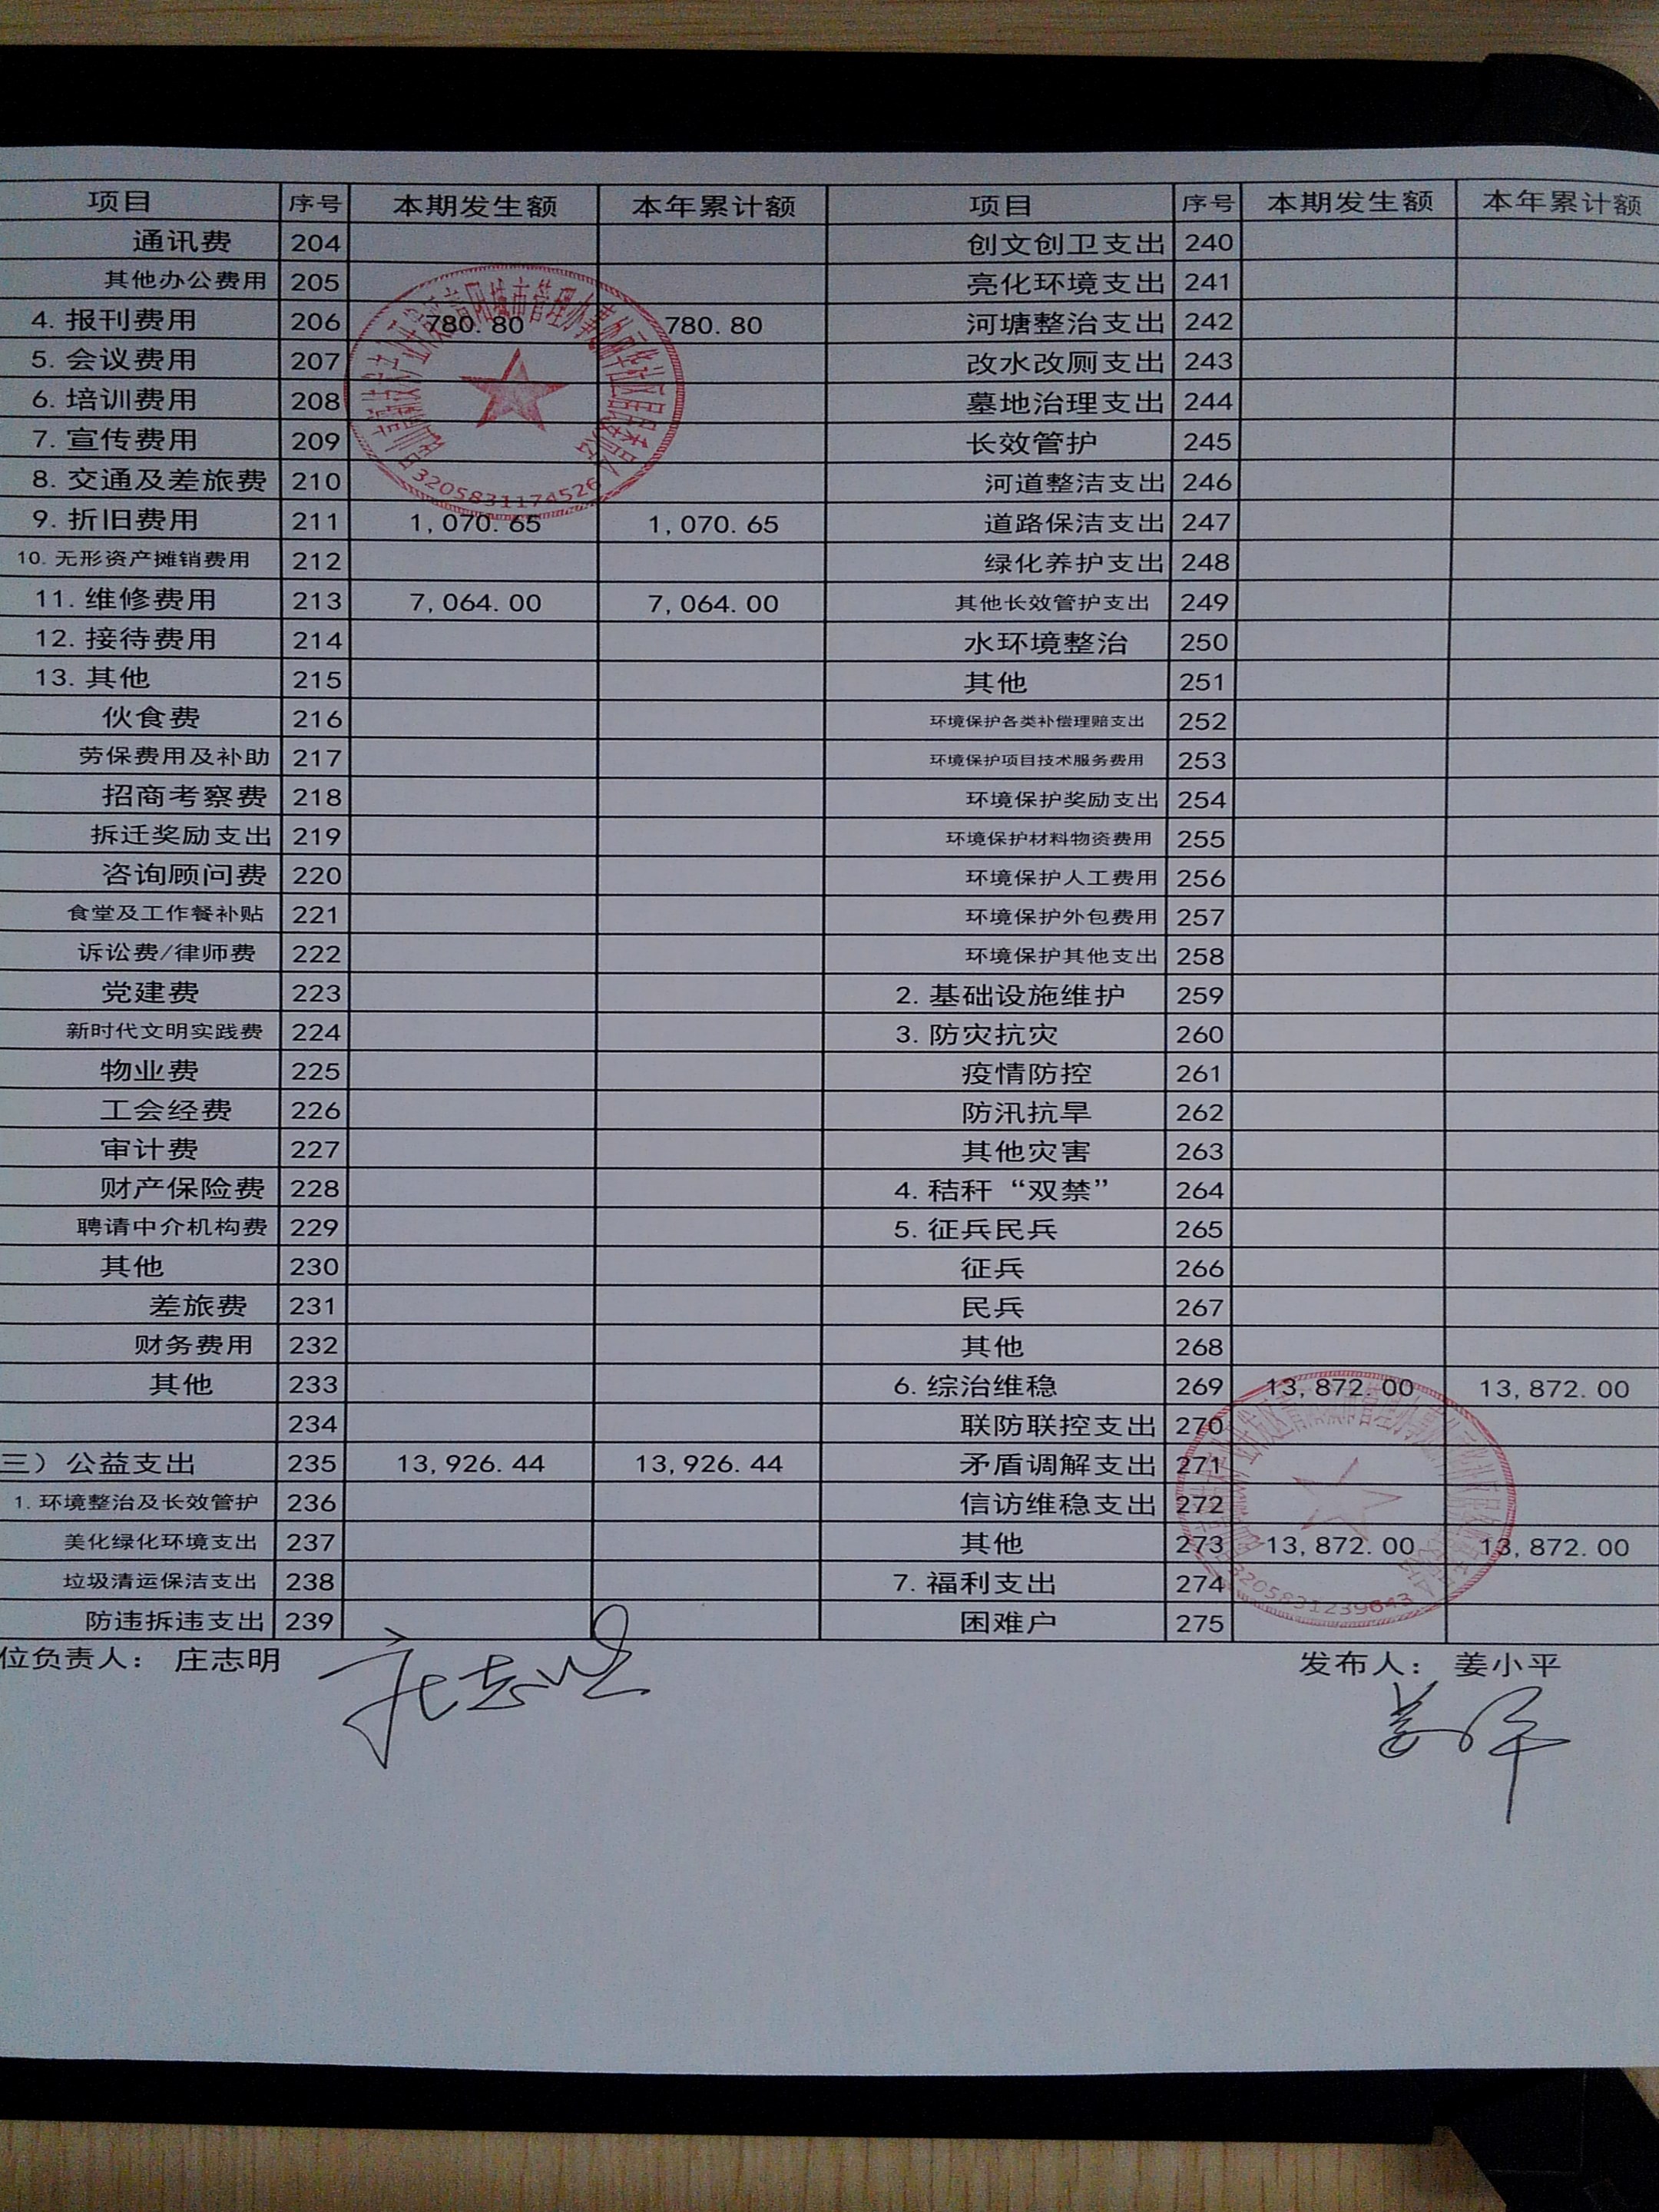 项目 序号 本期发生额 本年累计额 项目 序号 本期发生额 本年累计额
通讯费 204 创文创卫支出 240
其他办公费用 205 亮化环境支出 241
4. 报刊费用 206 780.80 780.80 河塘整治支出 242
5. 会议费用 207 改水改厕支出 243
6. 培训费用 208 墓地治理支出 244
7. 宣传费用 209 长效管护 245
8. 交通及差旅费 210 河道整洁支出 246
9. 折旧费用 211 1,070.65 1,070.65 道路保洁支出 247
10. 无形资产摊销费用 212 绿化养护支出 248
11. 维修费用 213 7,064.00 7,064.00 其他长效管护支出 249
12. 接待费用 214 水环境整治 250
13. 其他 215 其他 251
伙食费 216 环境保护各类补偿理赔支出 252
劳保费用及补助 217 环境保护项目技术服务费用 253
招商考察费 218 环境保护奖励支出 254
拆迁奖励支出 219 环境保护材料物资费用 255
咨询顾问费 220 环境保护人工费用 256
食堂及工作餐补贴 221 环境保护外包费用 257
诉讼费/律师费 222 环境保护其他支出 258
党建费 223 2. 基础设施维护 259
新时代文明实践费 224 3. 防灾抗灾 260
物业费 225 疫情防控 261
工会经费 226 防汛抗旱 262
审计费 227 其他灾害 263
财产保险费 228 4. 秸秆“双禁” 264
聘请中介机构费 229 5. 征兵民兵 265
其他 230 征兵 266
差旅费 231 民兵 267
财务费用 232 其他 268
其他 233 6. 综治维稳 269 13,872.00 13,872.00
234 联防联控支出 270
三）公益支出 235 13,926.44 13,926.44 矛盾调解支出 271
1. 环境整治及长效管护 236 信访维稳支出 272
美化绿化环境支出 237 其他 273 13,872.00 13,872.00
垃圾清运保洁支出 238 7. 福利支出 274
防违拆违支出 239 困难户 275
位负责人： 庄志明 发布人： 姜小平
庄志明 姜小平
3205831174526
3205831239643